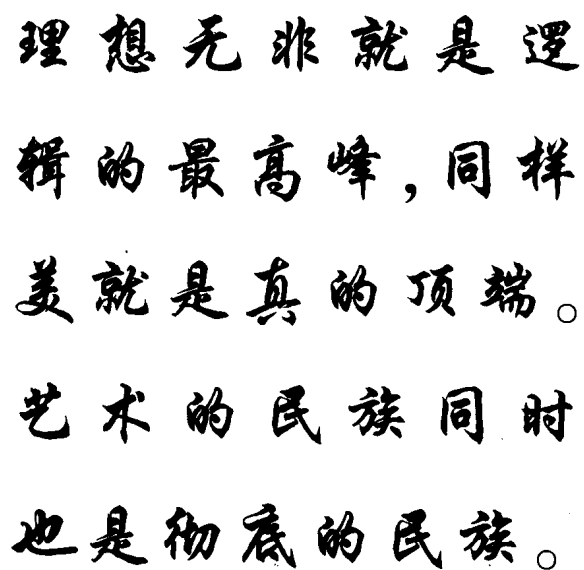 理想无非就是逻
辑的最高峰,同样
美就是真的顶端。
艺术的民族同时
也是彻底的民族。